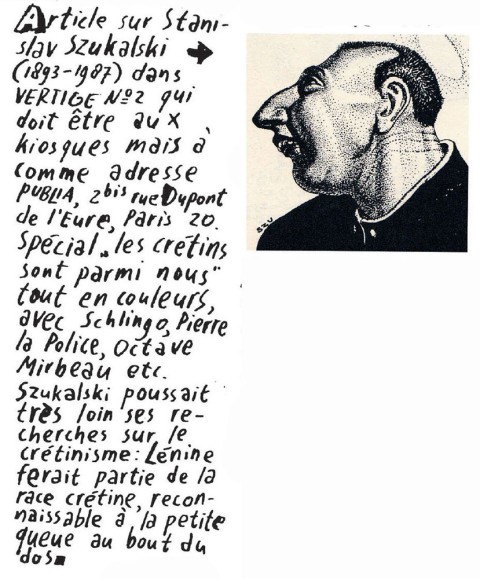 Article sur Stani-
slav Szukalski →
(1893-1987) dans
VERTIGE Nº2 qui
doit être aux
kiosques mais a
comme adresse
PUBLIA, 2bis rue Dupont
de l'Eure, Paris 20.
Spécial „les crétins
sont parmi nous"
tout en couleurs,
avec Schlingo, Pierre
la Police, Octave
Mirbeau etc.
Szukalski poussait
très loin ses re-
cherches sur le
crétinisme: Lénine
ferait partie de la
race crétine, recon-
naissable à la petite
queue au bout du
dos■